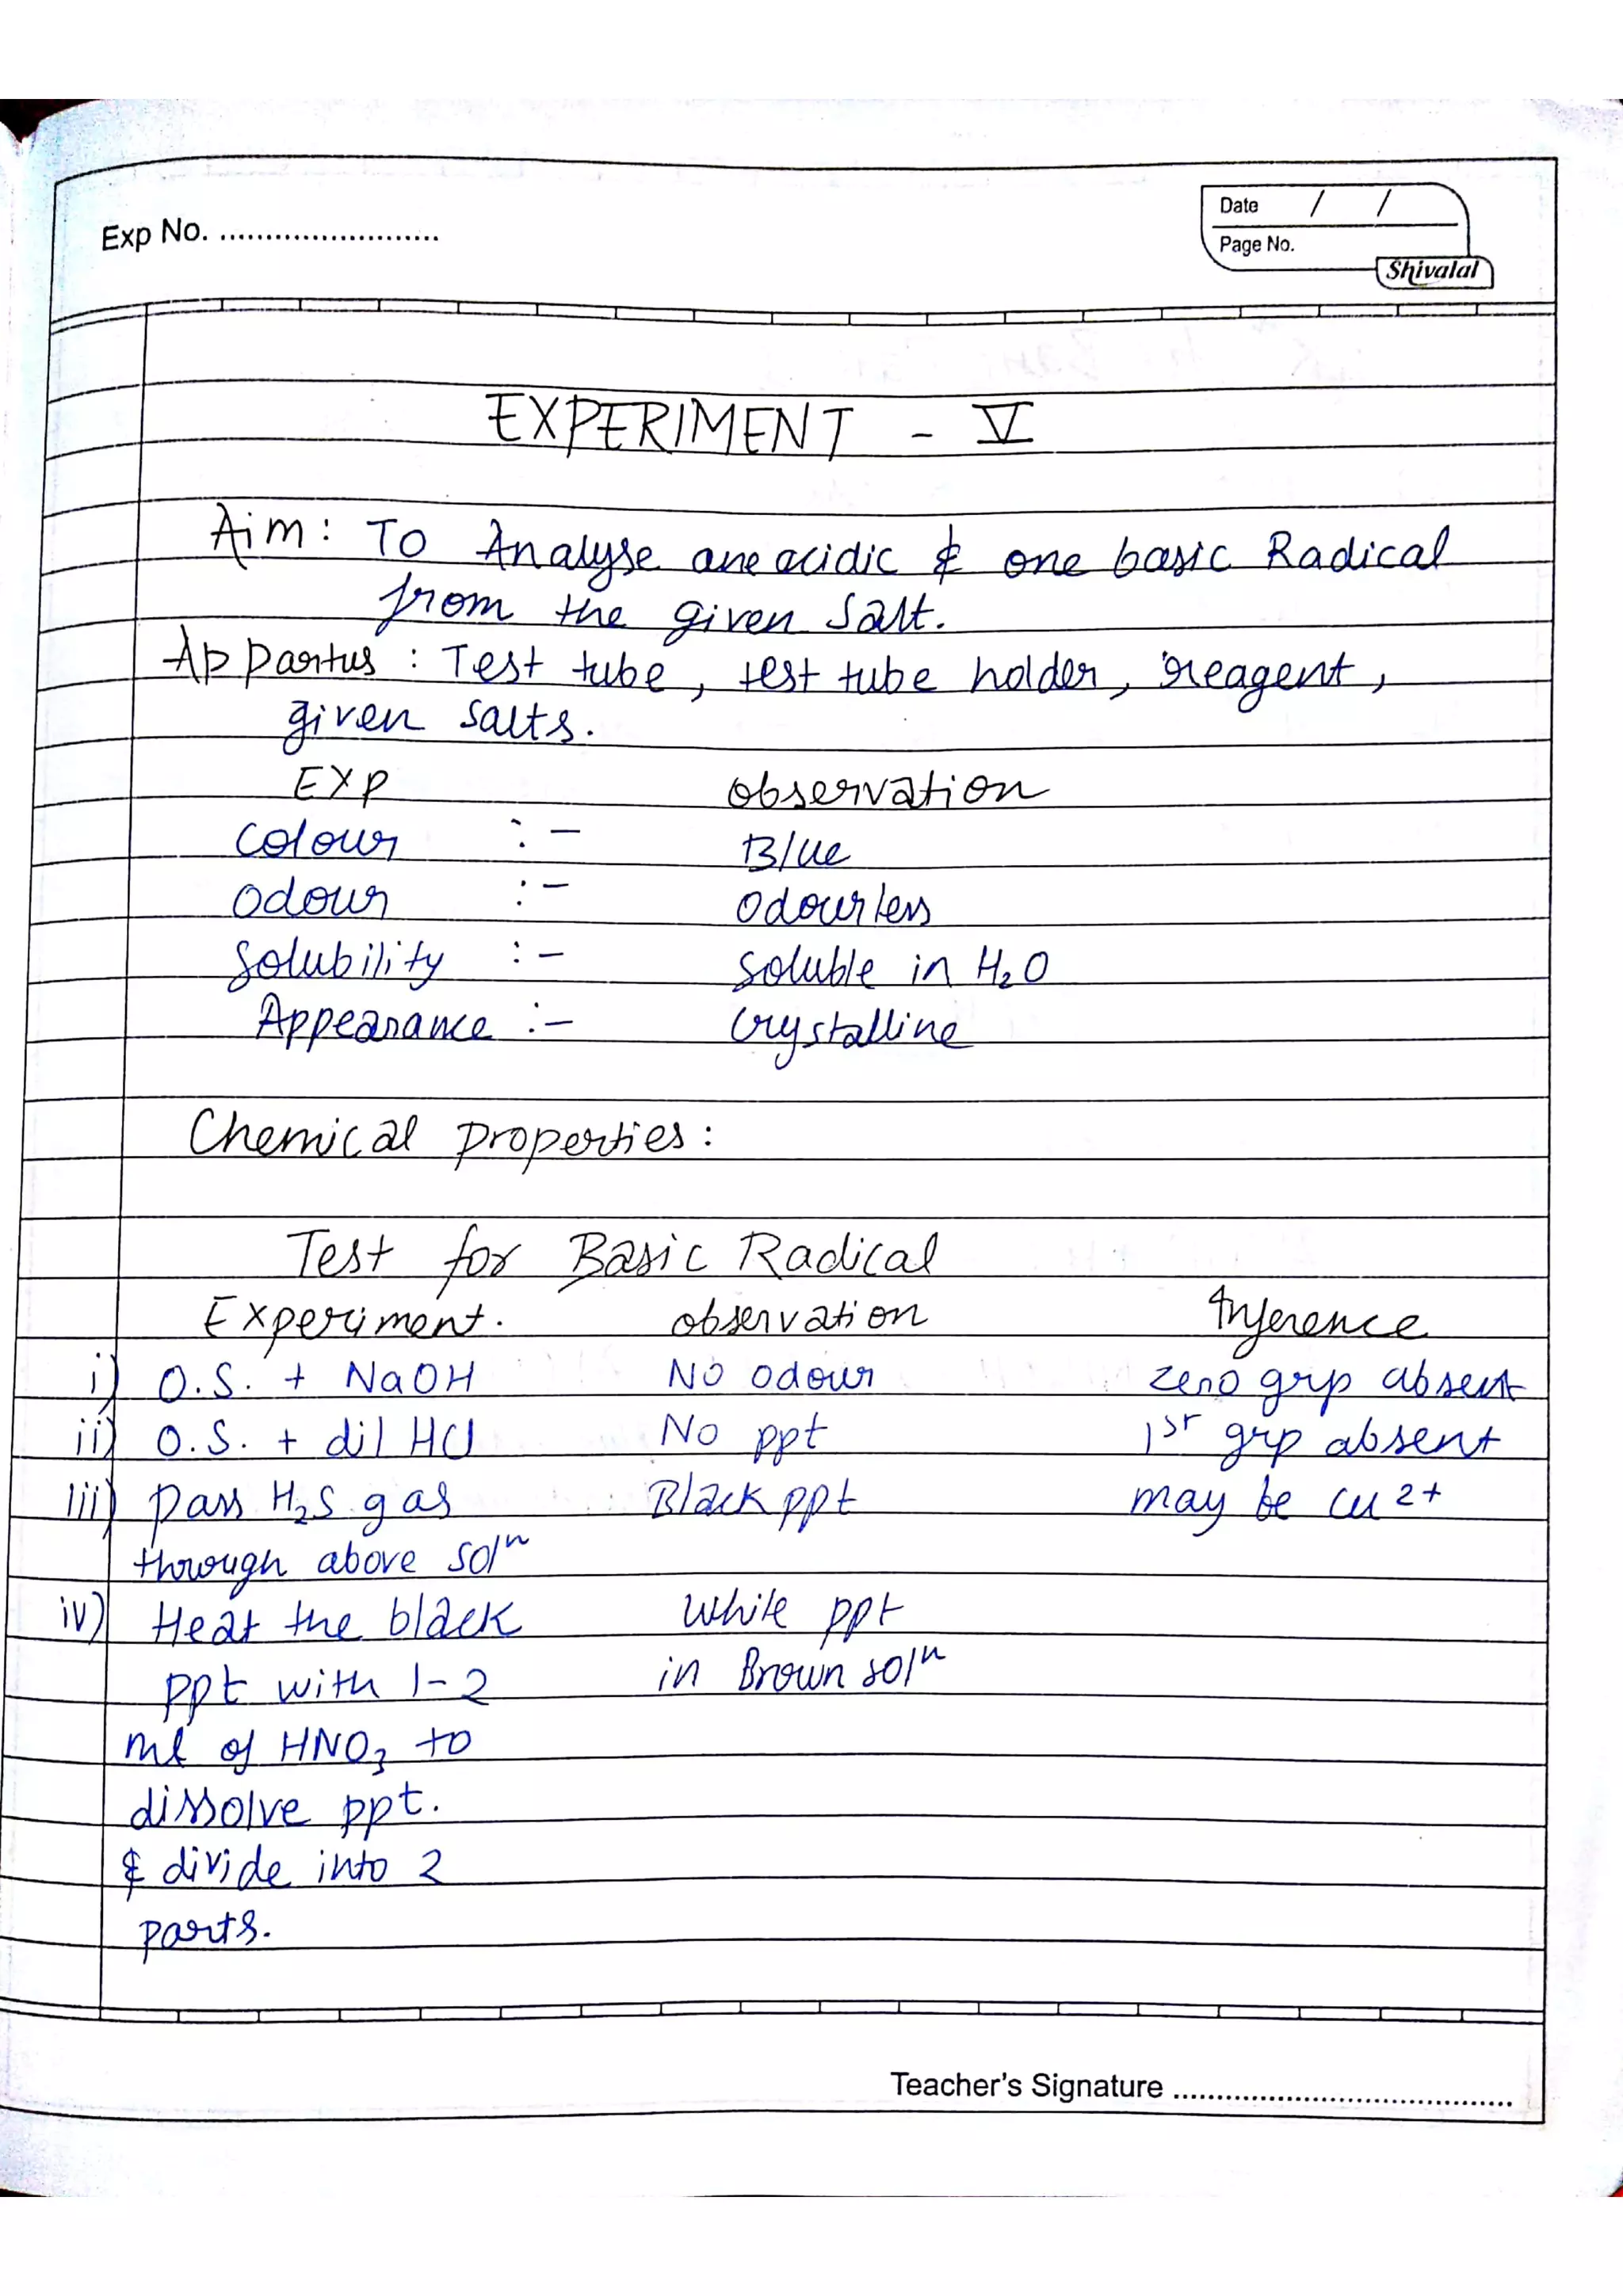 Exp No. ........................
Date / /
Page No.
Shivalal
EXPERIMENT - V
Aim: To Analyse one acidic & one basic Radical
from the given Salt.
Appartus : Test tube, test tube holder, reagent,
given salts.
EXP observation
Colour :- Blue
Odour :- Odourless
Solubility :- Soluble in H₂O
Appearance :- Crystalline
Chemical properties:
Test for Basic Radical
Experiment. observation Inference
i) O.S. + NaOH No odour zero grp absent
ii) O.S. + dil HCl No ppt 1st grp absent
iii) Pass H₂S gas Black ppt may be cu²⁺
through above solⁿ
iv) Heat the black White ppt
ppt with 1-2 in Brown solⁿ
ml of HNO₃ to
dissolve ppt.
& divide into 2
parts.
Teacher's Signature ....................................